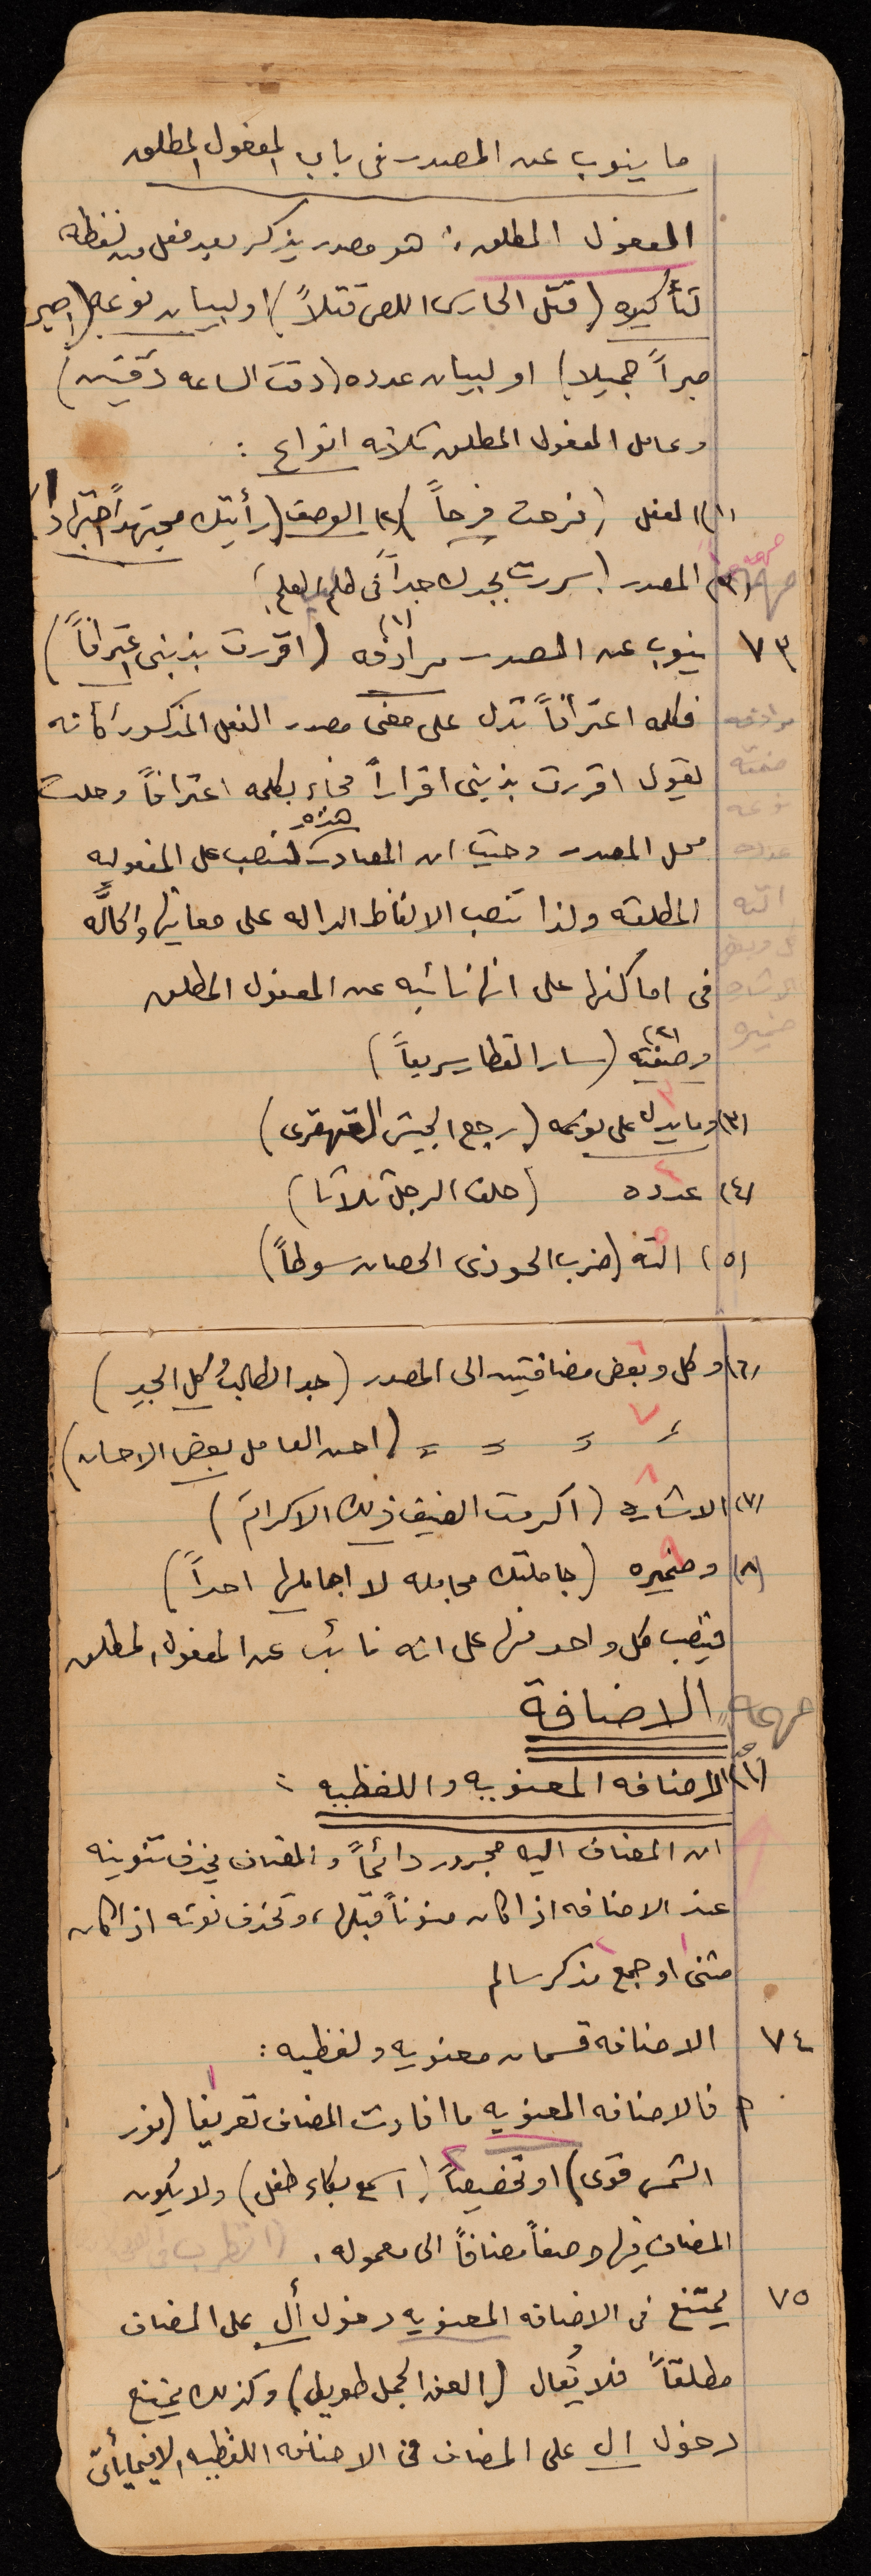 ما ينوب عن المصدر فى باب المفعول المطلق
المفعول المطلق: هو مصدر يذكر بعد فعل من لفظه
لتأكيده (قتل الحارس اللص قتلاً) او لبيان نوعه (اصبر
صبراً جميلا) او لبيان عدده (دقت الساعه دقتين)
وعامل المفعول المطلق ثلاثه انواع :
(١) الفعل (فرحت فرحاً) (٢) الوصف (رأيتك مجتهداً اجتهاداً)
(٣) المصدر (سررت بجدك جداً فى طلب العلم)
٧٣ ينوب عن المصدر (١) مرادفه (اقررت بذنبى اعترافاً)
فكلمه اعترافاً تدل على معنى مصدر الفعل المذكور كأنه
يقول اقررت بذنبى اقراراً فجاء بكلمه اعترافاً وحلت
محل المصدر وحيث ان المصادر هذه تنصب على المفعوليه
المطلقه ولذا تنصب الالفاظ الداله على معانيها والحالَّه
فى اماكنها على انها نائبه عن المفعول المطلق
(٢) وصفته (سار القطار سريعاً)
(٣) وما يدل على نوعه (رجع الجيش القهقرى)
(٤) عدده (حلف الرجل ثلاثا)
(٥) الته (ضرب الحوذى الحصان سوطاً)
مرادفه
صفته
نوعه
عدده
الته
كل وبعض
الاشاره
ضميره
(٦) وكل وبعض مضافتين الى المصدر (جد الطالبُ كل الجدِ)
= = = = (احسن العامل بعض الاحسان)
(٧) الاشاره (اكرمت الضيف ذلك الاكرام)
(٨) وضميره (جاملتك مجامله لا اجاملها احداً)
فينصب كل واحد منها على انه نائب عن المفعول المطلق
الاضافة
(١) الاضافه المعنويه واللفظيه :
ان المضاف اليه مجرور دائماً والمضاف يحذف تنوينه
عند الاضافه اذا كان منوناً قبلها، وتحذف نونه اذا كان
مثنى او جمع مذكر سالم
٧٤ الاضافه قسمان معنويه ولفظيه :
فالاضافه المعنويه ما افادت المضاف تعريفا (نور
الشمس قوى) او تخصيصاً (اسمع بكاء طفل) ولا يكون
المضاف فيها وصفاً مضافاً الى معموله.
٧٥ يمتنع فى الاضافه المعنويه دخول أل على المضاف
مطلقاً فلا يُقال (العنق الجمل طويل) وكذلك يمتنع
دخول ال على المضاف فى الاضافه اللفظيه الا فيما يأتى